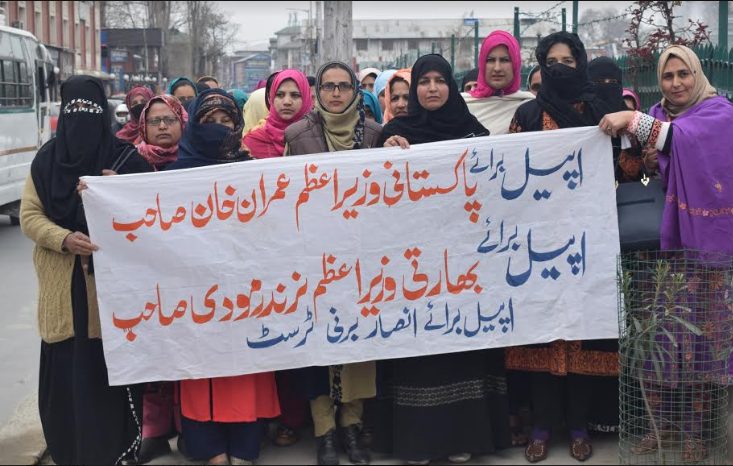 اپیل برائے پاکستانی وزیراعظم عمران خان صاحب
اپیل برائے بھارتی وزیراعظم نرندرمودی صاحب
اپیل برائے انصار برنی ٹرسٹ